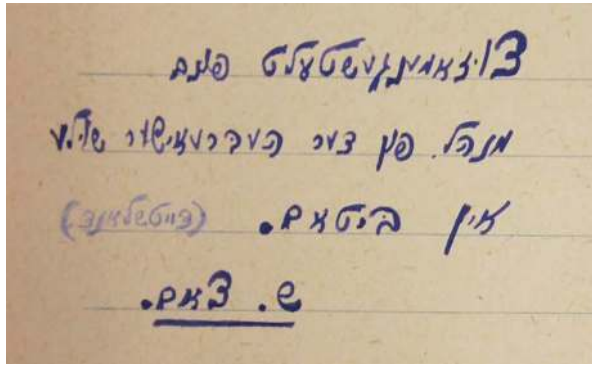 צוזאמענגעשטעלט פונם
מנהל פון דער העברעאישער שולע
אין ביטאם. (דייטשלאנד)
ש. צאם.